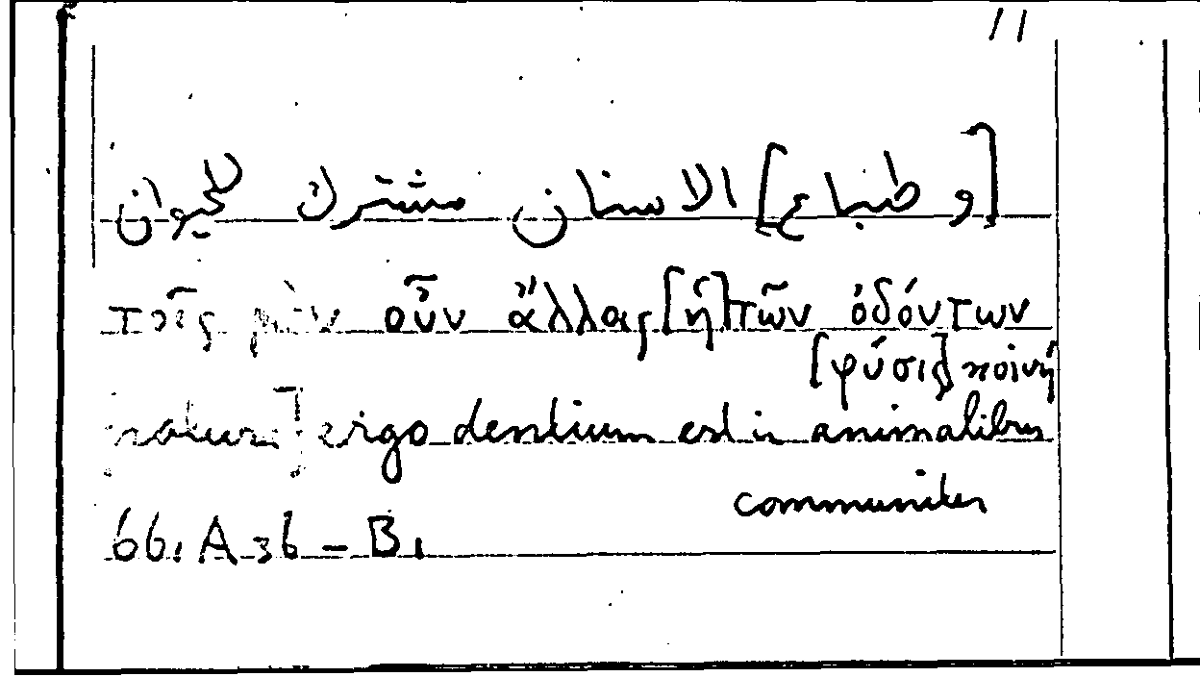 11
[و طباع] الاسنان مشترك للحيوان
τοῖς μὲν οὖν ἄλλοις [ἡ] τῶν ὀδόντων
[φύσις] κοινὴ
natura] ergo dentium est in animalibus
communiter
661 A 36 - B 1